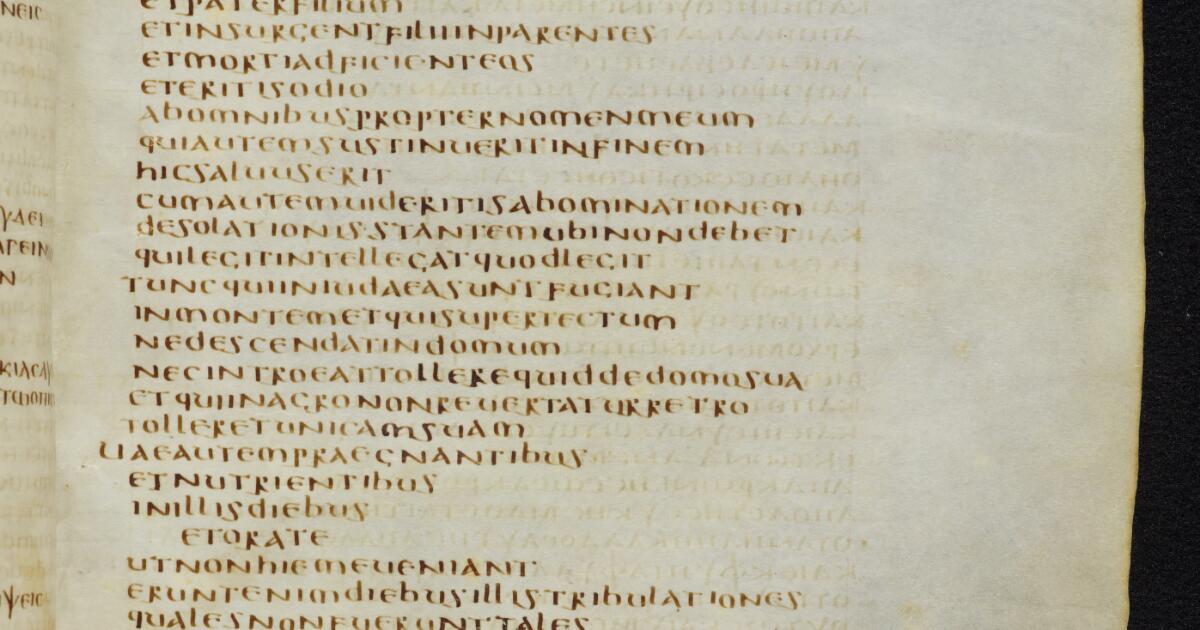 ETPATERFILIUM
ETINSURGENTFILIIINPARENTES
ETMORTIADFICIENTEOS
ETERITISODIO
ABOMNIBUSPROPTERNOMENMEUM
QUIAUTEMSUSTINUERITINFINEM
HICSALUUSERIT
CUMAUTEMUIDERITISABOMINATIONEM
DESOLATIONISSTANTEMUBINONDEBET
QUILEGITINTELLEGATQUODLEGIT
TUNCQUIINIUDAEASUNTFUGIANT
INMONTEMETQUISUPERTECTUM
NEDESCENDATINDOMUM
NECINTROEATTOLLEREQUIDDEDOMOSUA
ETQUIINAGRONONREUERTATURRETRO
TOLLERETUNICAMSUAM
UAEAUTEMPRAEGNANTIBUS
ETNUTRIENTIBUS
INILLISDIEBUS
ETORATE
UTNONHIEMEUENIANT
ERUNTENIMDIEBUSILLISTRIBULATIONES
QUALESNONFUERUNTTALES